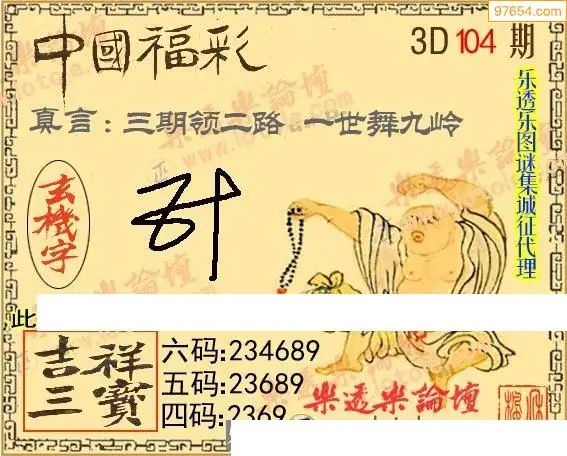 97654.com
中國福彩
3D 104 期
真言:三期领二路 一世舞九岭
乐透乐图谜集城征代理
玄機字
此
吉祥三寶
六码:234689
五码:23689
四码:2369
樂透樂論壇